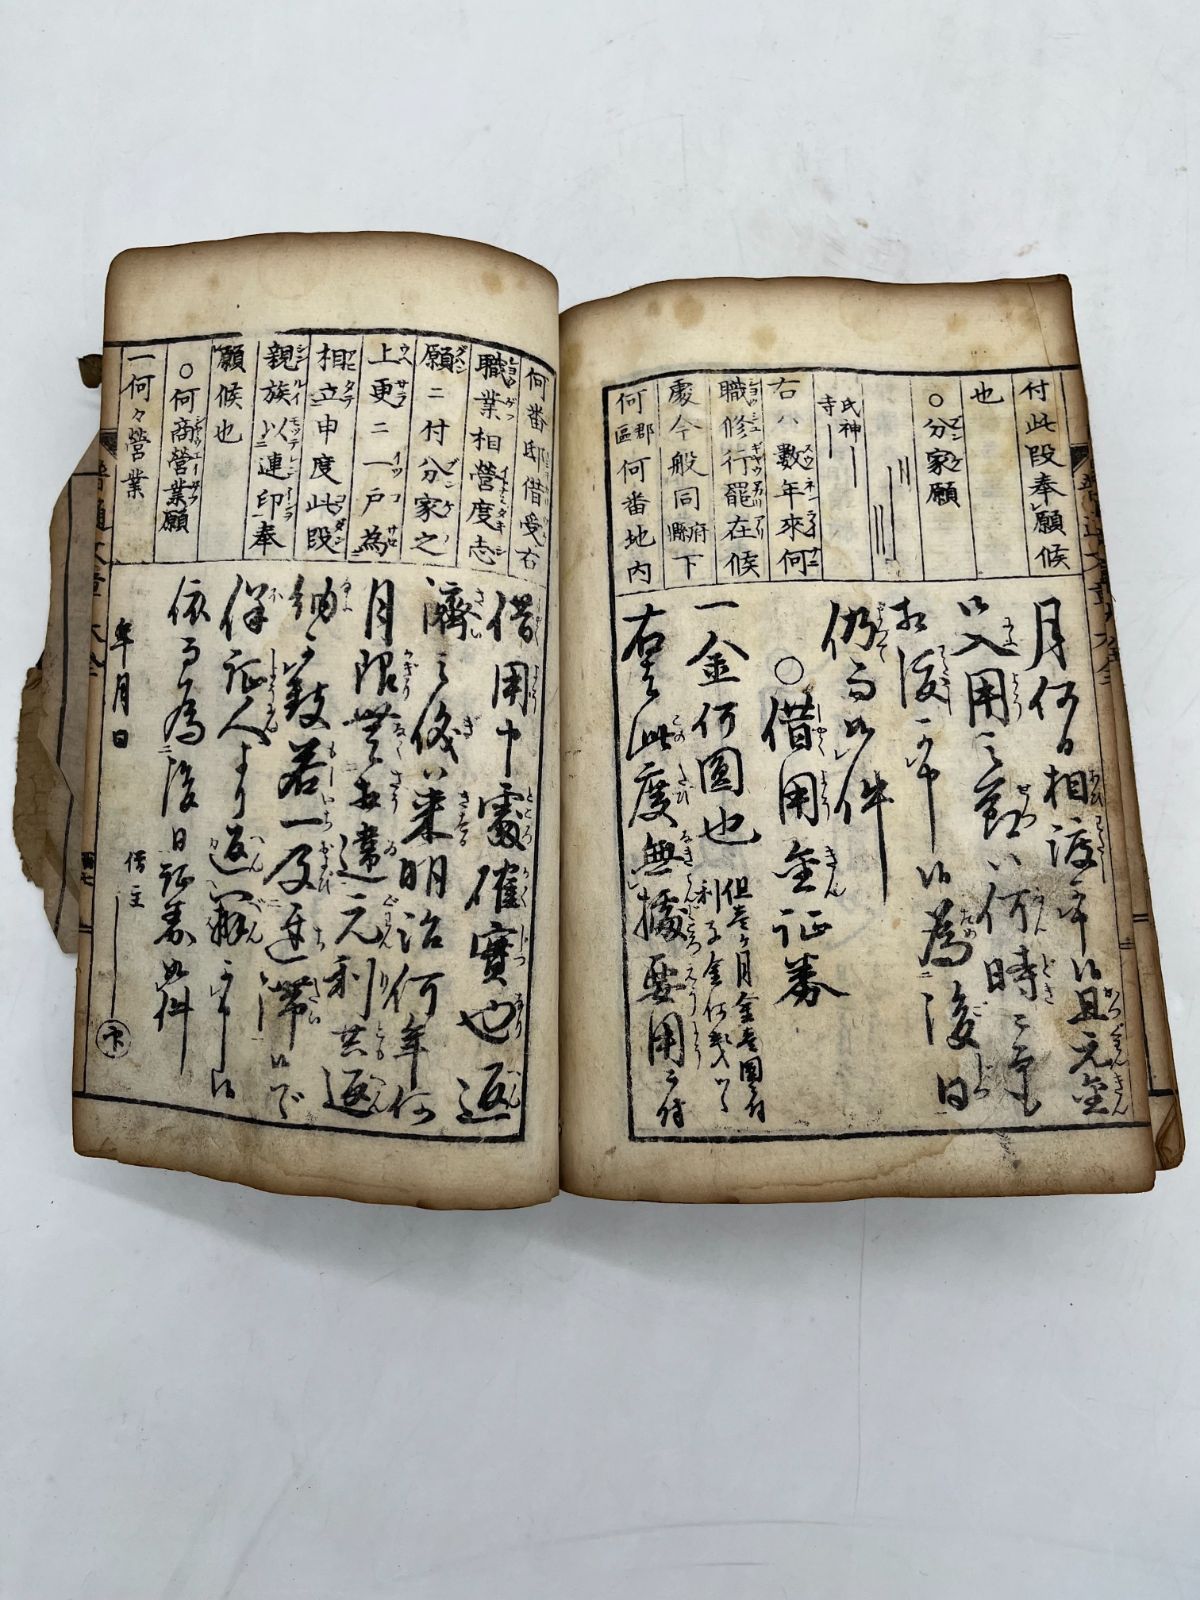 付此段奉願候
也
○分家願
氏神
寺
右ハ數年來何
職修行罷在候
處今般同府縣下
何郡區何番地内
月何日相渡可申候且元金
御入用之節ハ何時ニても
相渡可申候為後日
仍而如件
○借用金証券
一金何圓也
但壱ヶ月金壱圓ニ付
利子金何程
右者此度無據要用ニ付
何番邸借受右
職業相營度志
願ニ付分家之
上更ニ一戸為
相立申度此段
親族以連印奉
願候也
○何商營業願
一何々營業
借用申處確實也返
濟之儀ハ来明治何年何
月限無相違元利共返
納可致若一及遅滞候ハゞ
保証人より返辨可申候
依而為後日証券如件
年月日
借主
普通文章大全